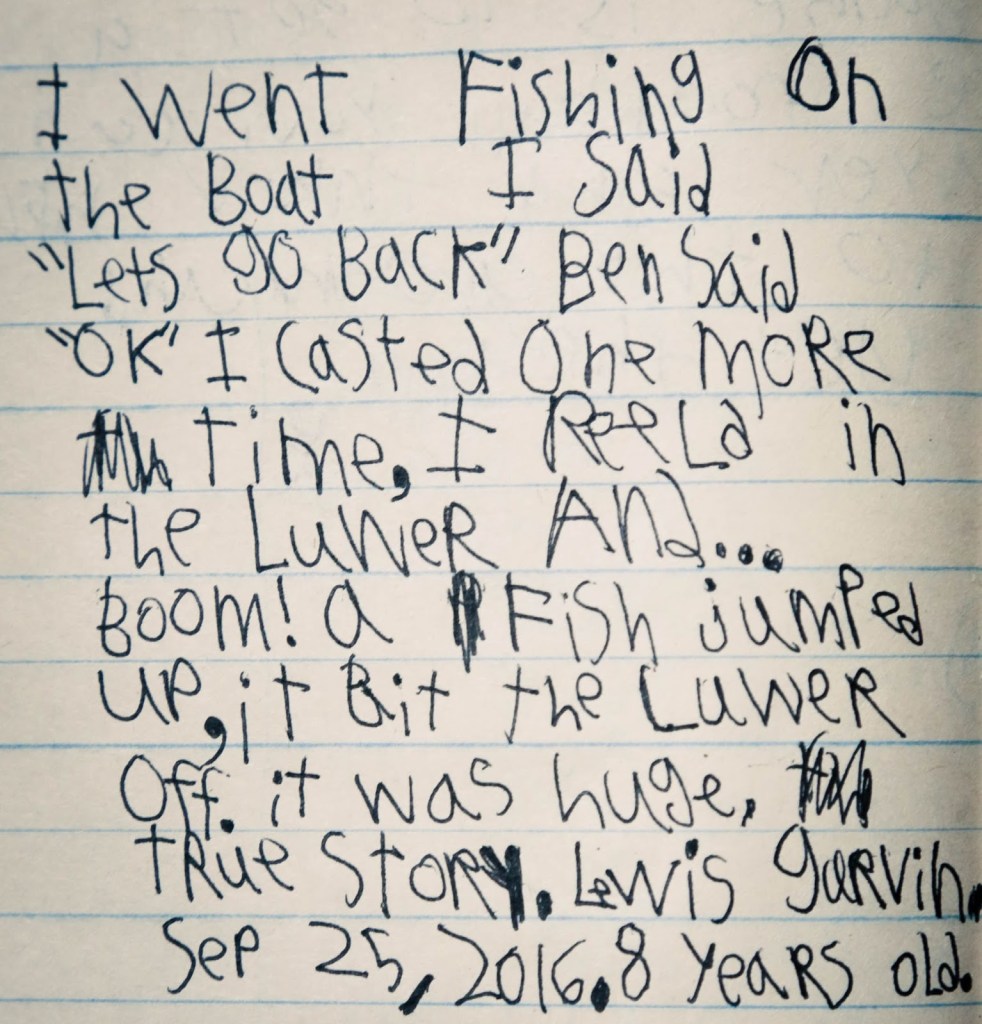 I Went Fishing On
the Boat I Said
"Lets go Back" Ben Said
"OK" I Casted One MoRe
Time, I ReeLd in
the LuWeR And...
Boom! a Fish jumped
up, it Bit the LuWeR
Off. it was huge.
tRue StoRy. Lewis garvin.
Sep 25, 2016. 8 YeaRs old.